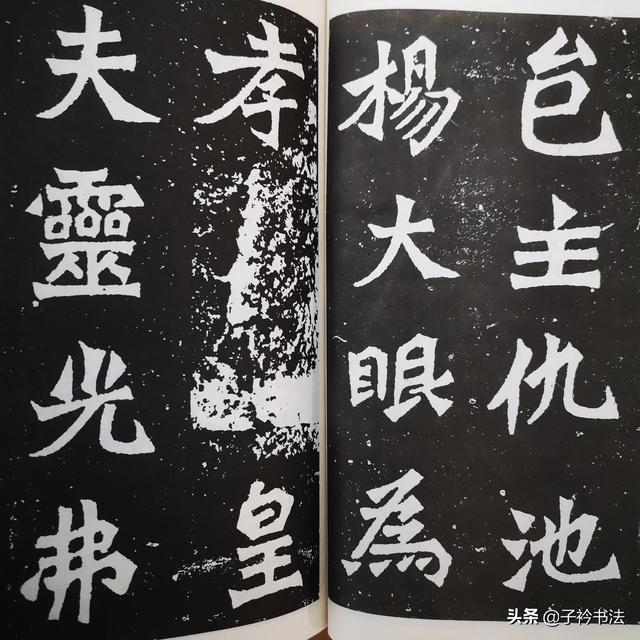 邑主仇池
楊大眼為
孝皇
夫靈光弗
头条 @子衿书法